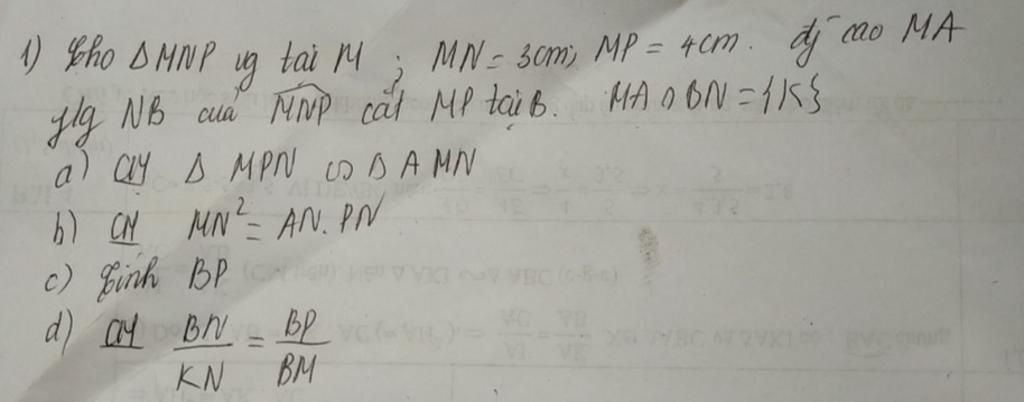 1) Cho Δ MNP vg tại M ; MN = 3cm; MP = 4cm. đg cao MA
plg NB của MNP cắt MP tại B. MA ∩ BN = {K}
a) CM Δ MPN ∽ Δ AMN
b) CM MN² = AN. PN
c) Tính BP
d) CM BN/KN = BP/BM